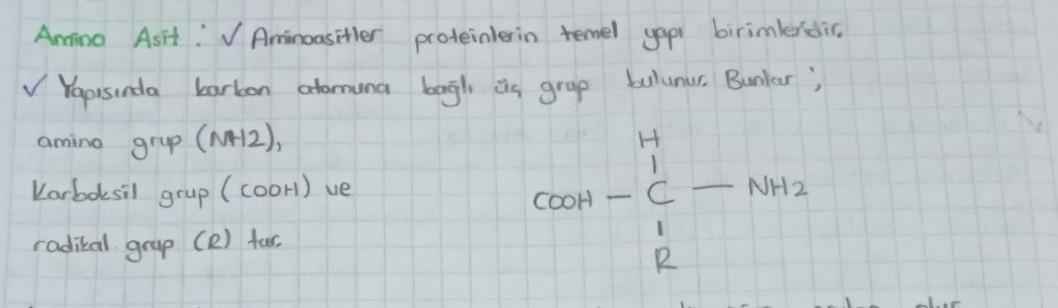 Amino Asit : ✓ Aminoasitler proteinlerin temel yapı birimleridir.
✓ Yapısında karbon atomuna bağlı üç grup bulunur. Bunlar ;
amino grup (NH2),
Karboksil grup (COOH) ve
radikal grup (R) tur.
H
COOH — C — NH2
R